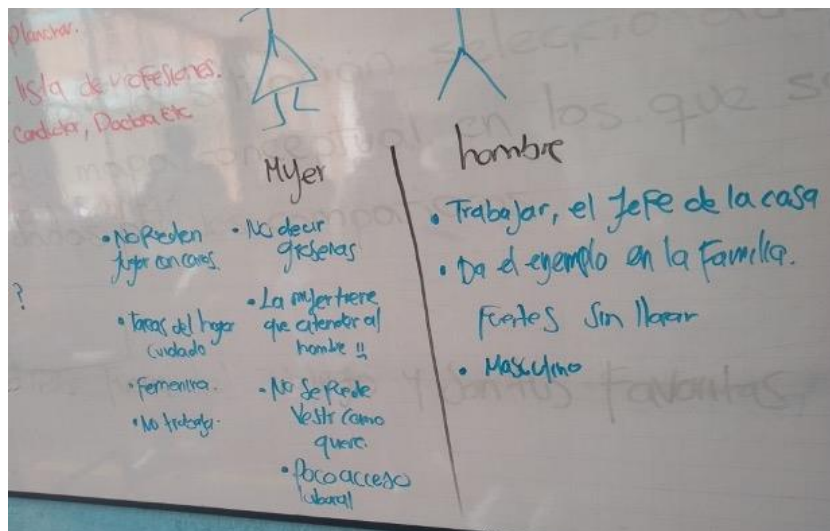 Planchar.
lista de profesiones.
Conductor, Doctora Etc
Mujer
• No Pueden
jugar con carros.
• Tareas del hogar
cuidado
• Femenina.
• No trabaja.
• No decir
groserias
• La mujer tiene
que atender al
hombre !!
• No se Puede
Vestir como
quere.
• Poco acceso
laboral
?
hombre
• Trabajar, el Jefe de la casa
• Da el ejemplo en la Familia.
Fuertes Sin llorar
• Masculino
selección
mapa conceptual en los que se
y con tus favoritas